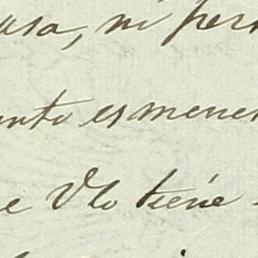 usa, ni per
ento es menes
e V lo tiene